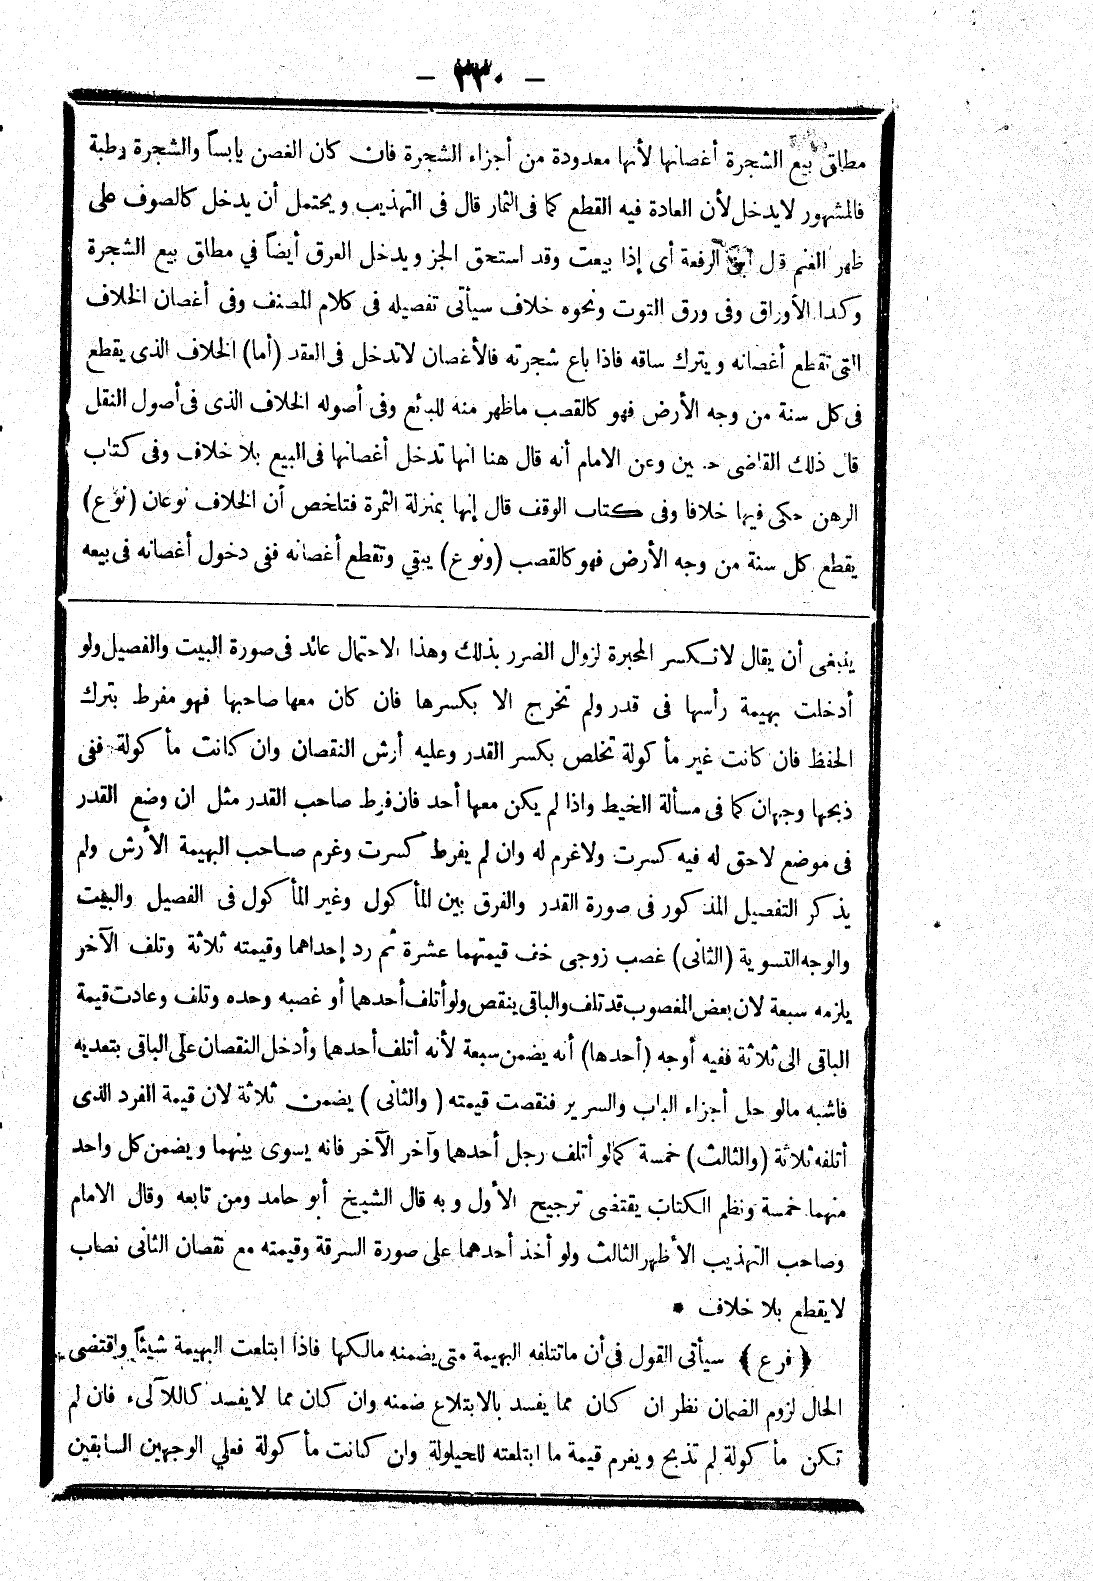 — ٣٣٠ —
مطلق بيع الشجرة أغصانها لأنها معدودة من أجزاء الشجرة فان كان الغصن يابساً والشجرة رطبة
فالمشهور لايدخل لأن العادة فيه القطع كما فى الثمار قال فى التهذيب ويحتمل أن يدخل كالصوف على
ظهر الغنم قال ابن الرفعة أى إذا بيعت وقد استحق الجز ويدخل العرق أيضاً في مطلق بيع الشجرة
وكذا الأوراق وفى ورق التوت ونحوه خلاف سيأتى تفصيله فى كلام المصنف وفى أغصان الخلاف
التى تقطع أغصانه ويترك ساقه فاذا باع شجرته فالأغصان لاتدخل فى العقد (أما) الخلاف الذى يقطع
فى كل سنة من وجه الأرض فهو كالقصب ماظهر منه للبائع وفى أصوله الخلاف الذى فى أصول النقل
قال ذلك القاضى حسين وعن الامام أنه قال هنا انها تدخل أغصانها فى البيع بلا خلاف وفى كتاب
الرهن حكى فيها خلافا وفى كتاب الوقف قال إنها بمنزلة الثمرة فتلخص أن الخلاف نوعان (نوع)
يقطع كل سنة من وجه الأرض فهو كالقصب (ونوع) يبقي وتقطع أغصانه ففى دخول أغصانه فى بيعه
ينبغى أن يقال لاتكسر المحبرة لزوال الضرر بذلك وهذا الاحتمال عائد فى صورة البيت والفصيل ولو
أدخلت بهيمة رأسها فى قدر ولم تخرج الا بكسرها فان كان معها صاحبها فهو مفرط بترك
الحفظ فان كانت غير مأكولة تخلص بكسر القدر وعليه أرش النقصان وان كانت مأكولة ففى
ذبحها وجهان كما فى مسألة الخيط واذا لم يكن معها أحد فان فرط صاحب القدر مثل ان وضع القدر
فى موضع لاحق له فيه كسرت ولاغرم له وان لم يفرط كسرت وغرم صاحب البهيمة الأرش ولم
يذكر التفصيل المذكور فى صورة القدر والفرق بين المأكول وغير المأكول فى الفصيل والبيت
والوجه التسوية (الثانى) غصب زوجى خف قيمتهما عشرة ثم رد إحداهما وقيمته ثلاثة وتلف الآخر
يلزمه سبعة لان بعض المغصوب قد تلف والباقى ينقص ولو أتلف أحدهما أو غصبه وحده وتلف وعادت قيمة
الباقى الى ثلاثة ففيه أوجه (أحدها) أنه يضمن سبعة لأنه أتلف أحدهما وأدخل النقصان على الباقى بتعديه
فاشبه مالو حل أجزاء الباب والسرير فنقصت قيمته (والثانى) يضمن ثلاثة لان قيمة الفرد الذى
أتلفه ثلاثة (والثالث) خمسة كمالو أتلف رجل أحدهما وآخر الآخر فانه يسوى بينهما ويضمن كل واحد
منهما خمسة ونظم الكتاب يقتضى ترجيح الأول وبه قال الشيخ أبو حامد ومن تابعه وقال الامام
وصاحب التهذيب الأظهر الثالث ولو أخذ أحدهما على صورة السرقة وقيمته مع نقصان الثانى نصاب
لايقطع بلا خلاف *
﴿ فرع ﴾ سيأتى القول فى أن ماتتلفه البهيمة متى يضمنه مالكها فاذا ابتلعت البهيمة شيئاً واقتضى
الحال لزوم الضمان نظر ان كان مما يفسد بالابتلاع ضمنه وان كان مما لايفسد كاللآلىء فان لم
تكن مأكولة لم تذبح ويغرم قيمة ما ابتلعته للحيلولة وان كانت مأكولة فعلي الوجهين السابقين